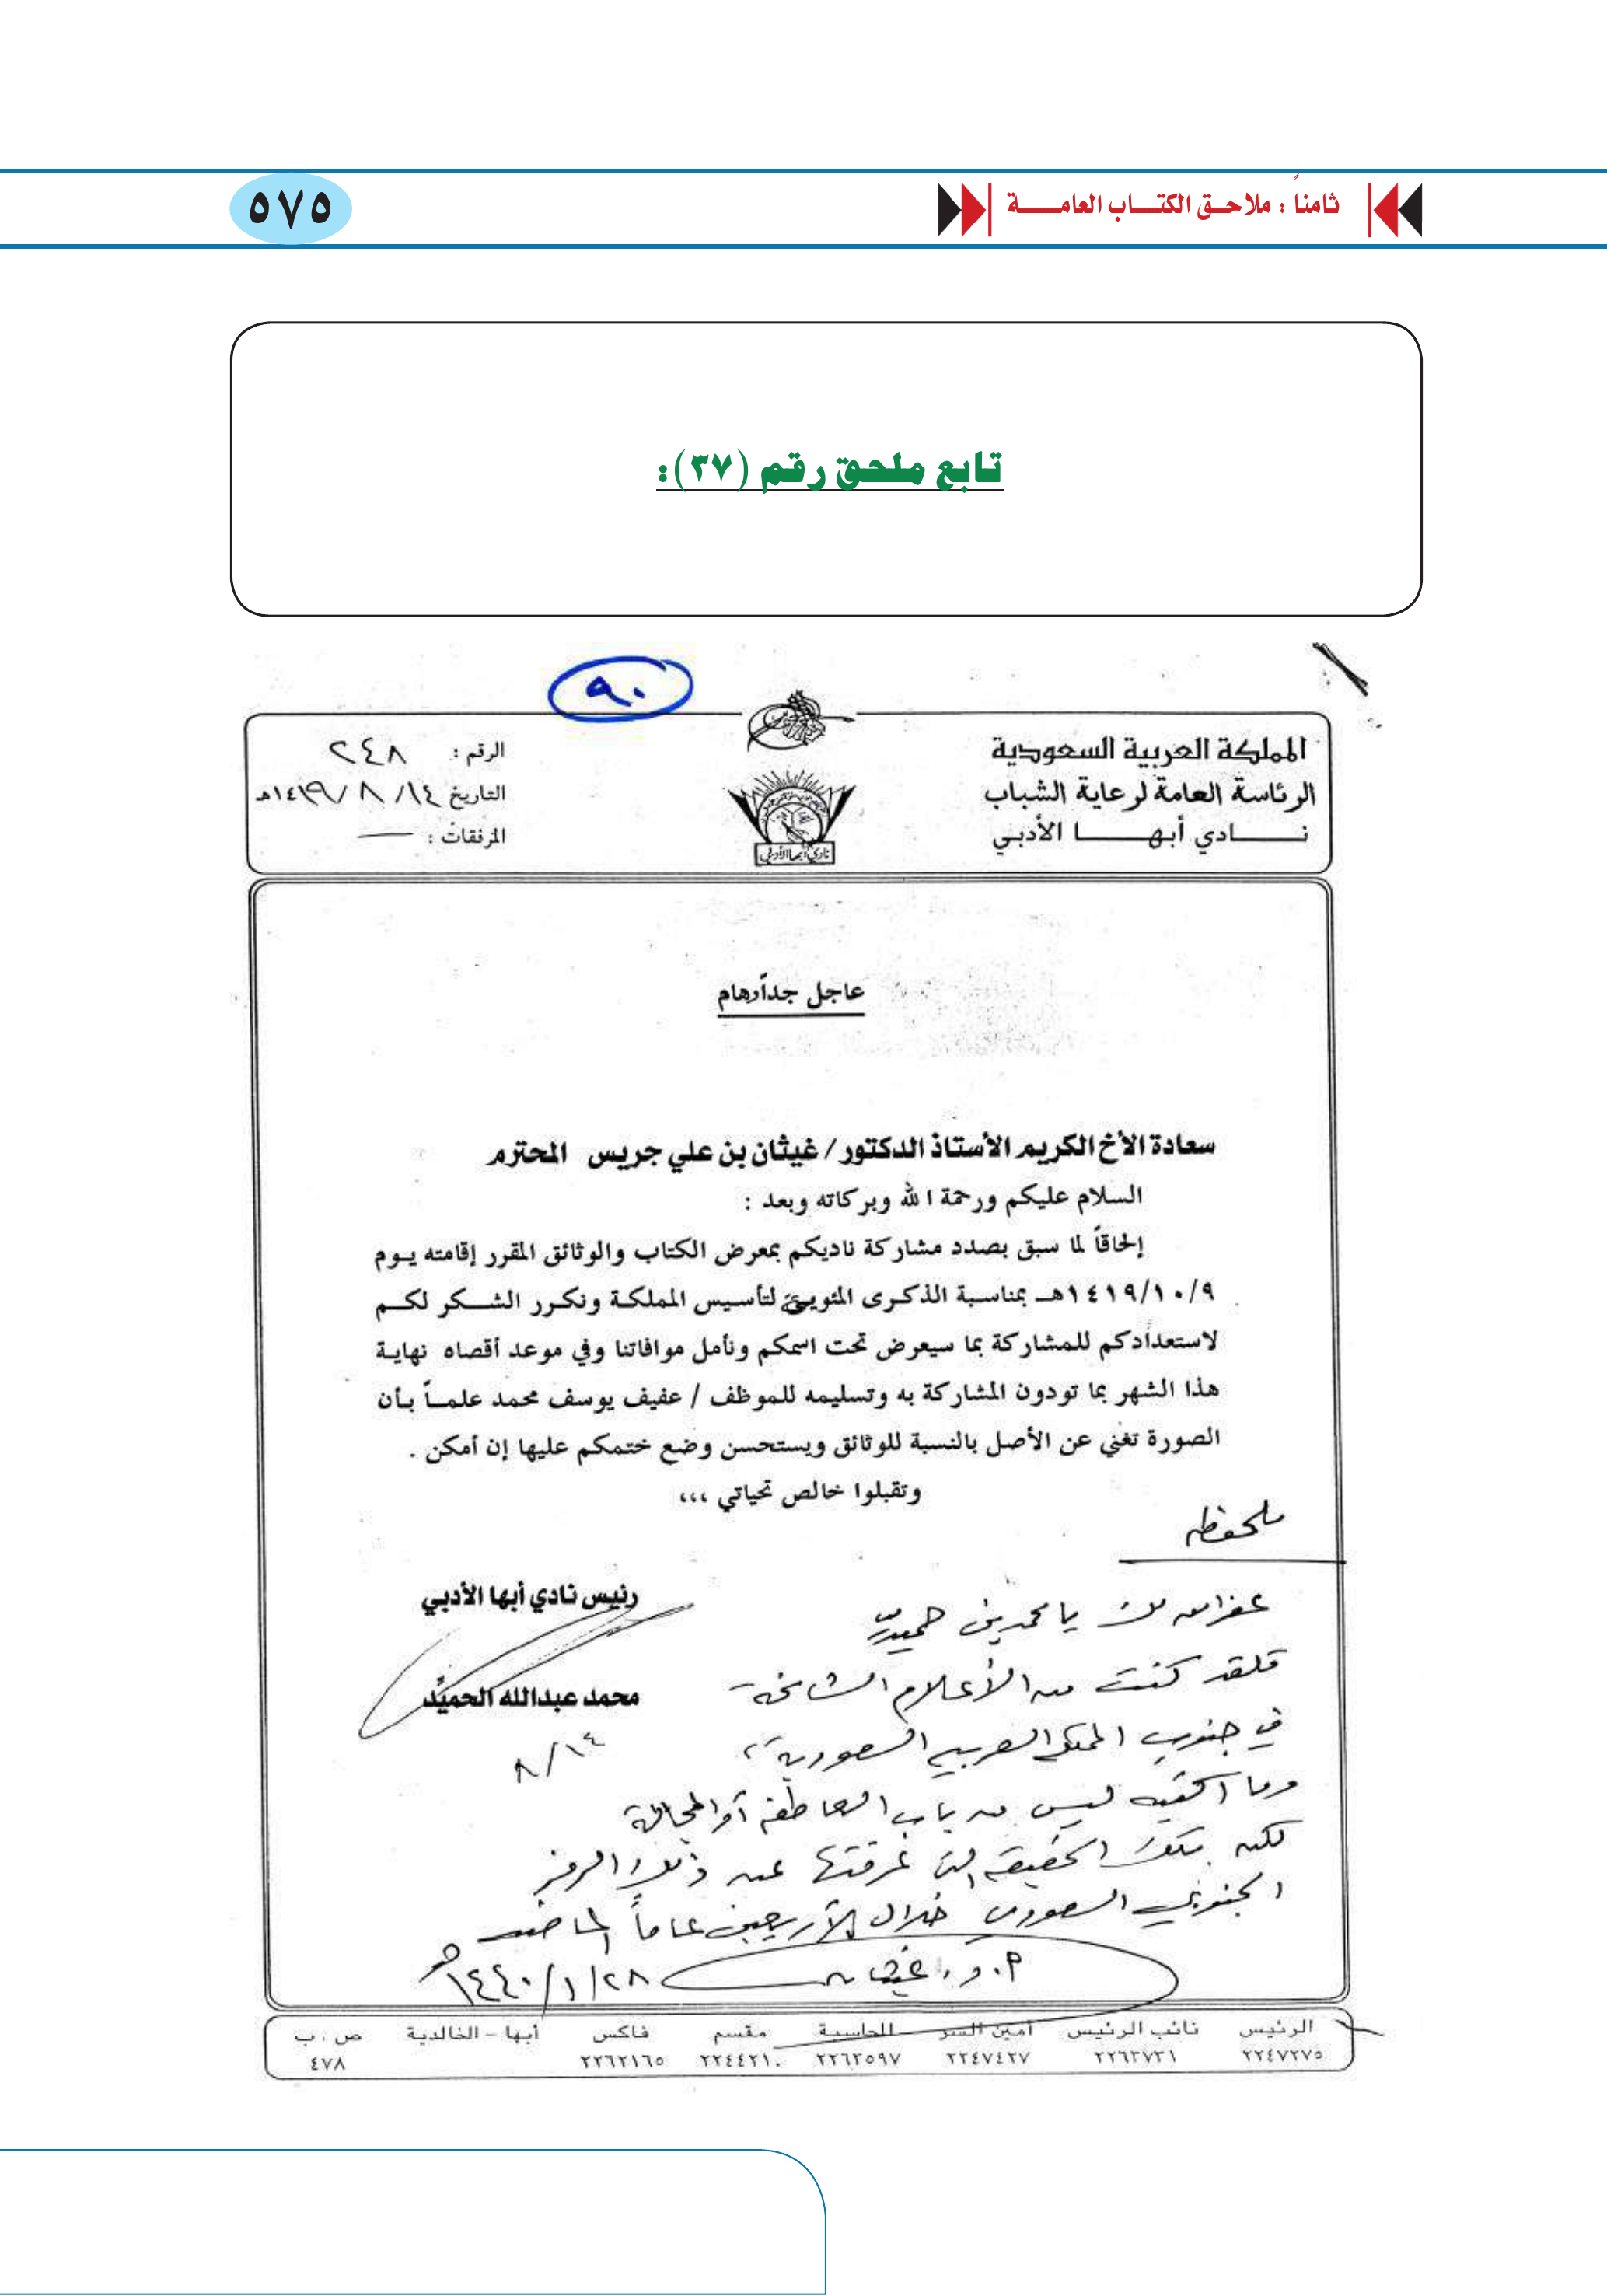 ثامناً : ملاحـق الكتـــاب العامــــة
٥٧٥
تابع ملحق رقم (٣٧):
٩٠
المملكة العربية السعودية
الرئاسة العامة لرعاية الشباب
نـــــادي أبهـــــا الأدبي
الرقم : ٢٤٨
التاريخ ١٤١٩/٨/١٤هـ
المرفقات : —
نادي أبها الأدبي
عاجل جداً وهام
سعادة الأخ الكريم الأستاذ الدكتور / غيثان بن علي جريس المحترم
السلام عليكم ورحمة الله وبركاته وبعد :
إلحاقاً لما سبق بصدد مشاركة ناديكم بمعرض الكتاب والوثائق المقرر إقامته يـوم
١٤١٩/١٠/٩هـ بمناسبة الذكرى المئوية لتأسيس المملكة ونكـرر الشـكر لكـم
لاستعدادكم للمشاركة بما سيعرض تحت اسمكم ونأمل موافاتنا وفي موعد أقصاه نهاية
هذا الشهر بما تودون المشاركة به وتسليمه للموظف / عفيف يوسف محمد علمـاً بـأن
الصورة تغني عن الأصل بالنسبة للوثائق ويستحسن وضع ختمكم عليها إن أمكن .
وتقبلوا خالص تحياتي ،،،
رئيس نادي أبها الأدبي
محمد عبدالله الحميّد
٨/١٤
ملحوظه
يا محمد بن حميد
فلقد كنت من الأعلام الشامخة
في جنوب المملكة العربية السعودية،،
وما اكتبه ليس من باب العاطفة أو المجاملة
لكنه تلك الحقيقة التي عرفتها عن ذلك الرمز
الجنوبي السعودي خلال الأربعين عاماً الماضية
أ.د. غيثان ١٤٤٠/١/٢٨هـ
الرئيس نائب الرئيس أمين السر المحاسبة مقسم فاكس أبها – الخالدية ص . ب
٢٢٤٧٢٧٥ ٢٢٦٣٧٣١ ٢٢٤٧٤٢٧ ٢٢٦٢٥٩٧ ٢٢٤٤٢١٠ ٢٢٦٢١٦٥ ٤٧٨